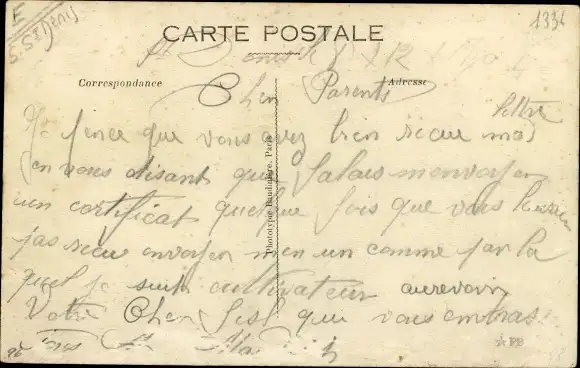 E
S. St Denis
1334
CARTE POSTALE
St Denis le 8
Correspondance
Adresse
Cher Parents
lettre
Je pence que vous avez bien recu ma
en vous disant que falais menvoyer
un certificat quelque fois que vous
pas recu envoyer men un comme par la
quel je suis cultivateur aurevoir
Votre Cher fist qui vous embras
Phototypie Baudinière, Paris
PB